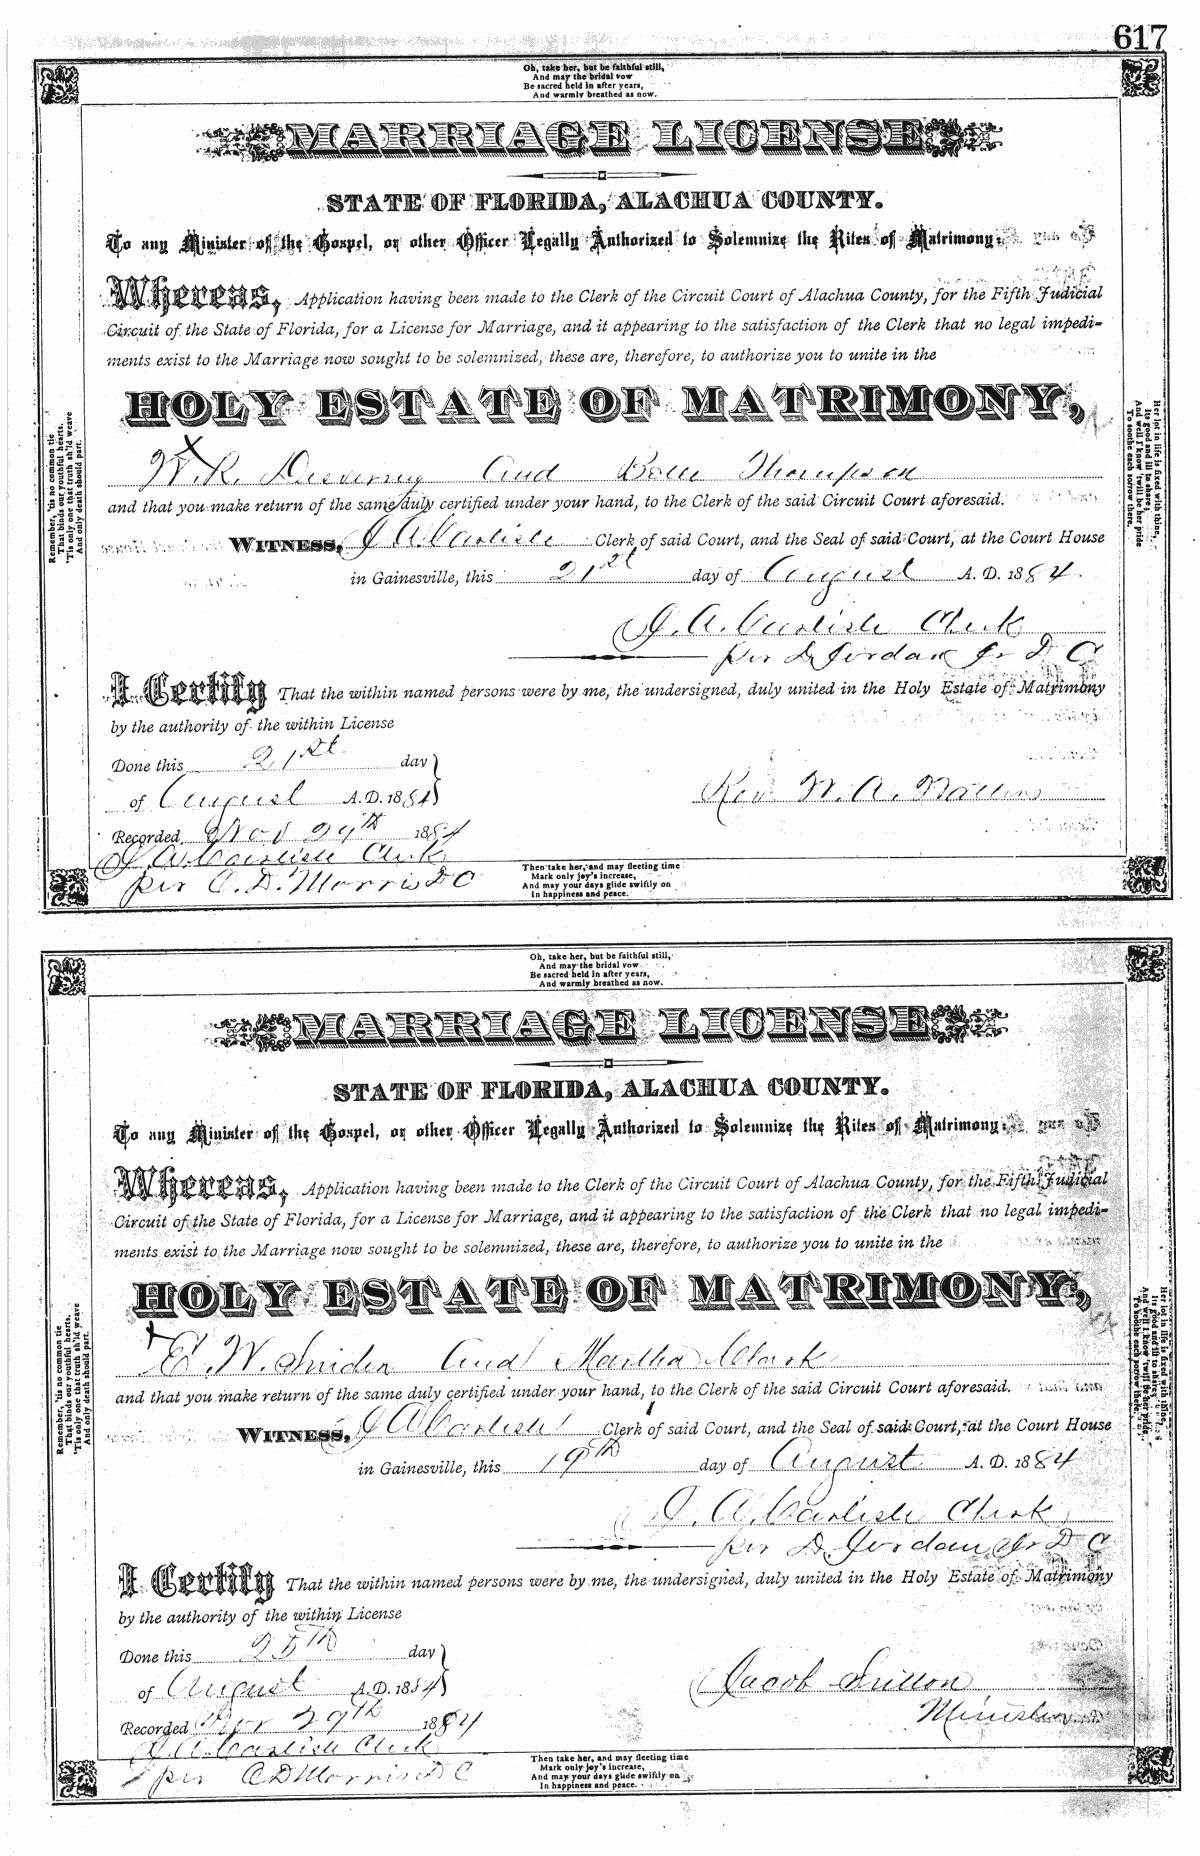 617
Oh, take her, but be faithful still,
And may the bridal vow
Be sacred held in after years,
And warmly breathed as now.
MARRIAGE LICENSE
STATE OF FLORIDA, ALACHUA COUNTY.
To any Minister of the Gospel, or other Officer Legally Authorized to Solemnize the Rites of Matrimony:
Whereas, Application having been made to the Clerk of the Circuit Court of Alachua County, for the Fifth Judicial
Circuit of the State of Florida, for a License for Marriage, and it appearing to the satisfaction of the Clerk that no legal impedi-
ments exist to the Marriage now sought to be solemnized, these are, therefore, to authorize you to unite in the
HOLY ESTATE OF MATRIMONY,
W. R. and Thompson
and that you make return of the same duly certified under your hand, to the Clerk of the said Circuit Court aforesaid.
WITNESS, J A Carlisle Clerk of said Court, and the Seal of said Court, at the Court House
in Gainesville, this 21st day of August A. D. 1884
J. A. Carlisle Clerk
per D Jordan Jr D C
I Certify That the within named persons were by me, the undersigned, duly united in the Holy Estate of Matrimony
by the authority of the within License
Done this 21st day
of August A.D. 1884
Rev. W. A.
Recorded Nov 29th 1884
J. A. Carlisle Clerk
per C. D. Morris D C
Then take her, and may fleeting time
Mark only joy's increase,
And may your days glide swiftly on
In happiness and peace.
Remember, 'tis no common tie
That binds our youthful hearts,
'Tis only one that truth sh'ld weave
And only death should part.
Her lot in life is fixed with thine,
Its good and ill to share,
And well I know 'twill be her pride
To soothe each sorrow there.
Oh, take her, but be faithful still,
And may the bridal vow
Be sacred held in after years,
And warmly breathed as now.
MARRIAGE LICENSE
STATE OF FLORIDA, ALACHUA COUNTY.
To any Minister of the Gospel, or other Officer Legally Authorized to Solemnize the Rites of Matrimony:
Whereas, Application having been made to the Clerk of the Circuit Court of Alachua County, for the Fifth Judicial
Circuit of the State of Florida, for a License for Marriage, and it appearing to the satisfaction of the Clerk that no legal impedi-
ments exist to the Marriage now sought to be solemnized, these are, therefore, to authorize you to unite in the
HOLY ESTATE OF MATRIMONY,
E. W. Snider and Martha Clark
and that you make return of the same duly certified under your hand, to the Clerk of the said Circuit Court aforesaid.
WITNESS, J A Carlisle Clerk of said Court, and the Seal of said Court, at the Court House
in Gainesville, this 19th day of August A. D. 1884
J. A. Carlisle Clerk
per D. Jordan Jr D C
I Certify That the within named persons were by me, the undersigned, duly united in the Holy Estate of Matrimony
by the authority of the within License
Done this 25th day
of August A.D. 1884
Jacob
Minister
Recorded Nov 29th 1884
J. A. Carlisle Clerk
per C D Morris D C
Then take her, and may fleeting time
Mark only joy's increase,
And may your days glide swiftly on
In happiness and peace.
Remember, 'tis no common tie
That binds our youthful hearts,
'Tis only one that truth sh'ld weave
And only death should part.
Her lot in life is fixed with thine,
Its good and ill to share,
And well I know 'twill be her pride
To soothe each sorrow there.